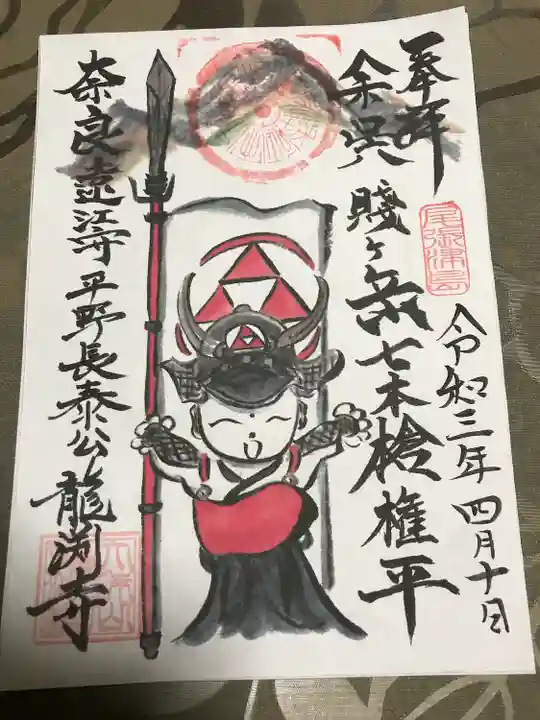 奉拝
尾張津島
令和三年四月十日
余呉賤ヶ岳七本槍権平
奈良遠江守平野長泰公
龍渕寺